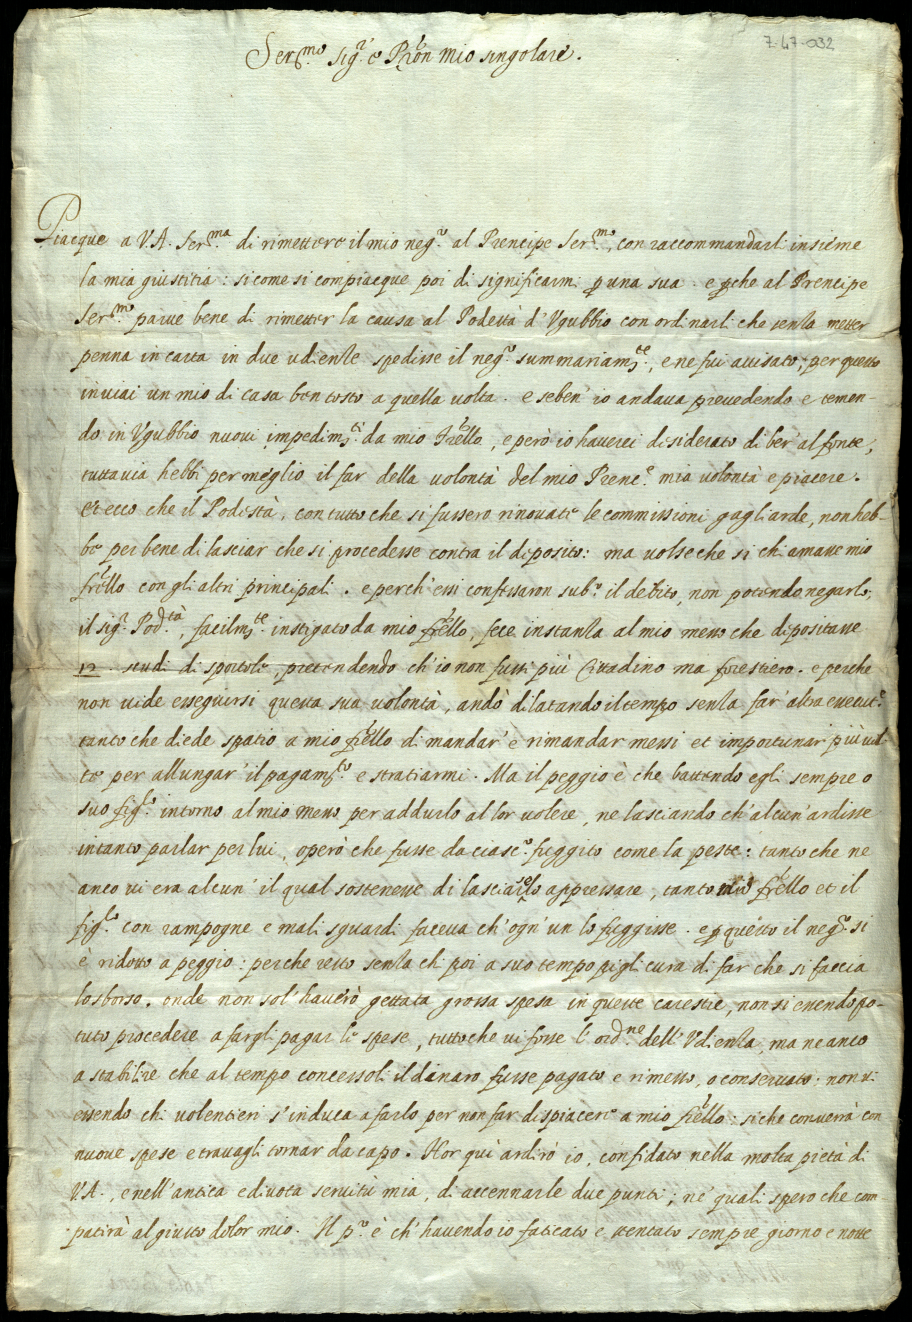 7-47-032
Ser.mo sig.r e Pron mio singolare.
Piacque a V.A. ser.ma di rimettere il mio neg.o al Prencipe Ser.mo, con raccommandarli insieme
la mia giustitia: si come si compiacque poi di significarmi p una sua. e pche al Prencipe
Ser.mo parve bene di rimetter la causa al Podestà d'Vgubbio con ordinarli che senza metter
penna in carta in due udienze spedisse il neg.o summariam.te, e ne fui avisato; per questo
inviai un mio di casa ben tosto a quella volta. e seben' io andava prevedendo e temen-
do in Vgubbio nuovi impedim.ti da mio frello, e però io haverei desiderato di ber' al fonte,
tuttavia hebbi per meglio il far della volontà del mio Prenc.e mia volontà e piacere.
Et ecco che il Podestà, con tutto che si fussero rinovate le commissioni gagliarde, non heb-
be per bene di lasciar che si procedesse contra il deposito: ma volse che si chiamasse mio
frello con gli altri principali. e perch'essi confessaron sub.o il debito, non potendo negarlo,
il sig.r Pod.tà, facilm.te instigato da mio frello, fece instanza al mio messo che depositasse
12 scudi di sportole, pretendendo ch'io non fussi più Cittadino ma forestiero. e perche
non vide esseguirsi questa sua volontà, andò dilatando il tempo senza far' altra essecut.e
tanto che diede spatio a mio frello di mandar' e rimandar messi et importunar più vol-
te per allungar' il pagam.to e stratiarmi. Ma il peggio è che battendo egli sempre o
suo fig.lo intorno al mio messo per addurlo al lor volere, ne lasciando ch'alcun' ardisse
intanto parlar per lui, operò che fusse da ciasc.o fuggito come la peste: tanto che ne
anco vi era alcun' il qual sostenesse di lasciarselo appressare, tanto mio frello et il
fig.lo con rampogne e mali sguardi faceva ch'ogn'un lo fuggisse. e p questo il neg.o si
è ridotto a peggio: perche resto senza chi poi a suo tempo pigli cura di far che si faccia
lo sborso. onde non sol' haverò gettata grossa spesa in queste carestie, non si essendo po-
tuto procedere a fargli pagar le spese, tutto che vi fosse l'ord.ne dell'Vdienza, ma ne anco
a stabilire che al tempo concessoli il danaro fusse pagato e rimesso, o conservato. non vi
essendo chi volentieri s'induca a farlo per non far dispiacere a mio frello: si che converrà con
nuove spese e travagli tornar da capo. Hor qui ardirò io, confidato nella molta pietà di
V.A., e nell'antica e divota servitù mia, di accennarle due punti; ne' quali spero che com-
patirà al giusto dolor mio. Il p.o è ch'havendo io faticato e stentato sempre giorno e notte